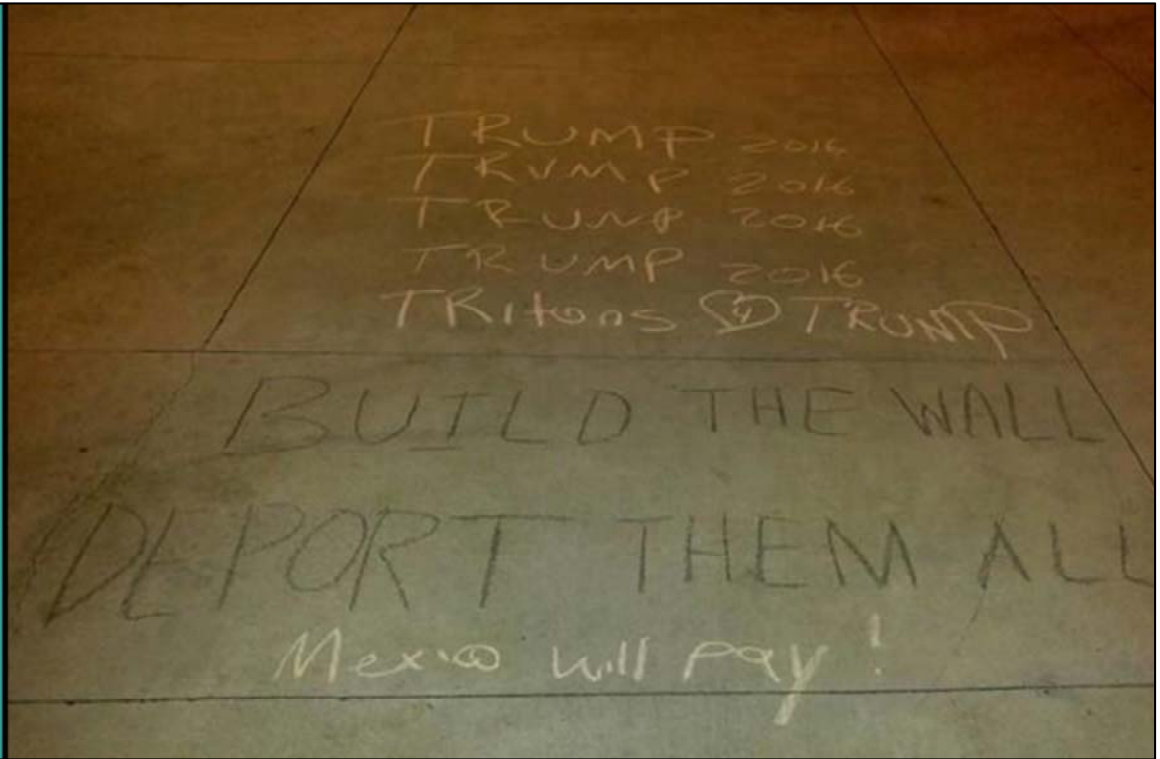 TRUMP 2016
TRUMP 2016
TRUMP 2016
TRUMP 2016
TRitons 4 TRUMP
BUILD THE WALL
DEPORT THEM ALL
Mexico will pay!